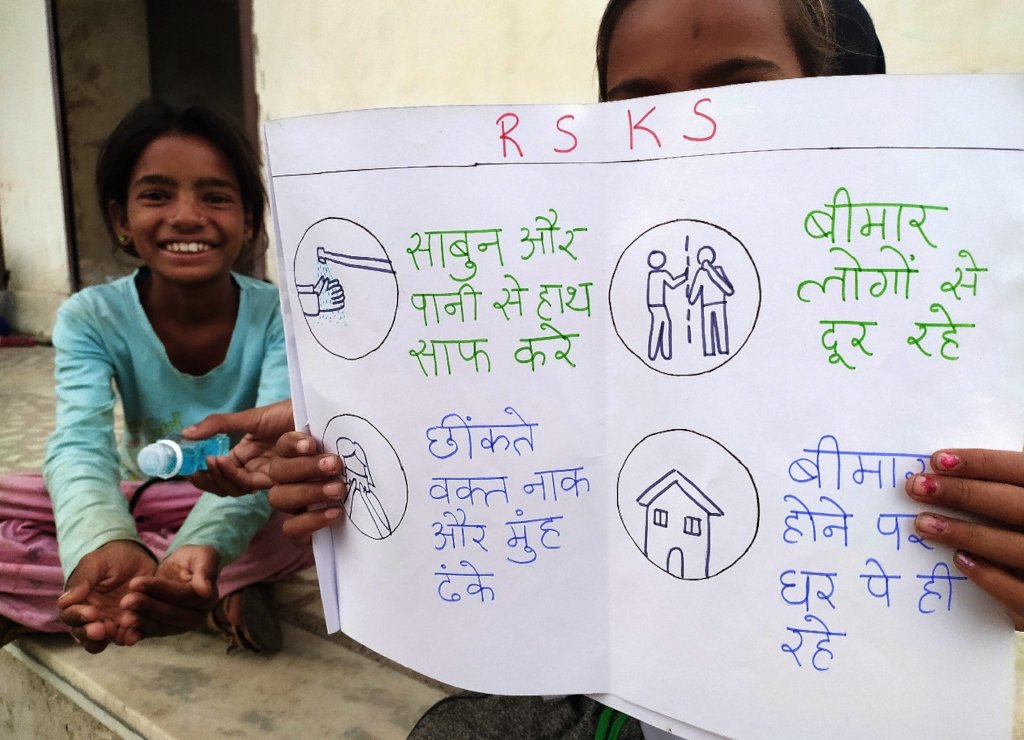 R S K S
साबुन और
पानी से हाथ
साफ करे
बीमार
लोगों से
दूर रहे
छींकते
वक्त नाक
और मुंह
ढंके
बीमार
होने पर
घर पे ही
रहे